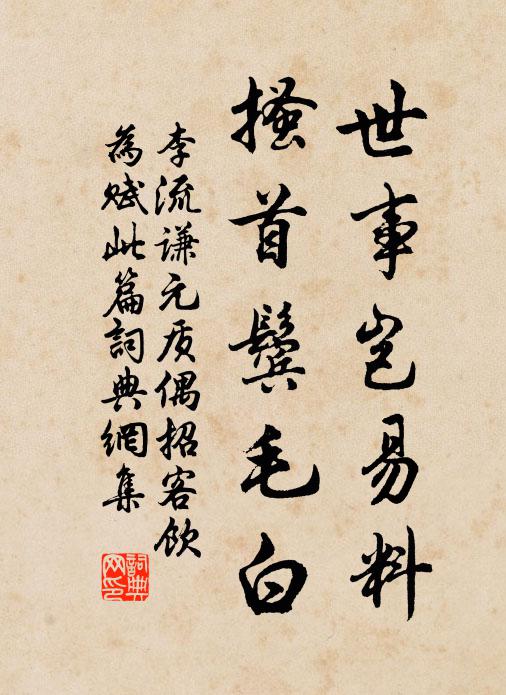 世事岂易料
搔首鬓毛白
李流谦元质偶招客饮
為赋此篇詞典網集
詞典网印